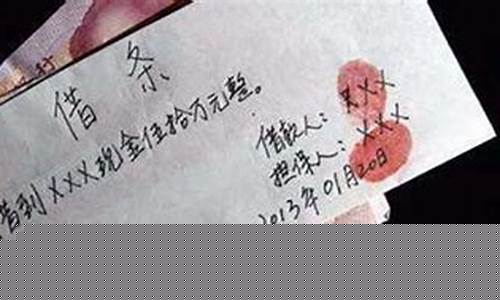 借条
借到XXX现金伍拾万元整。
借款人：XXX
担保人：XXX
2013年01月20日